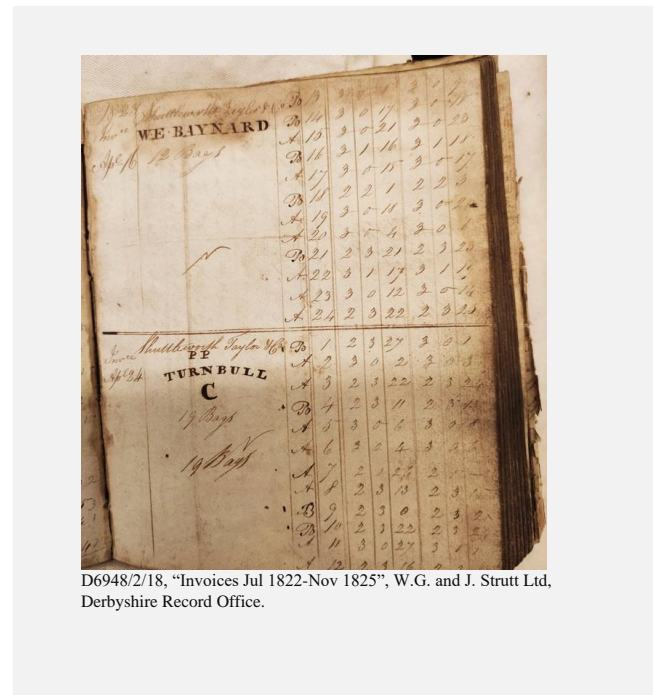 1823 Shuttleworth Taylor & Co
Invce WE BAYNARD
Apl 16 12 Bags
Bo 13
Bo 14 3 0 17 3 0
A 15 3 0 21 3 0 23
Bo 16 3 1 16 3 1 18
A 17 3 0 15 3 0 17
Bo 18 2 2 1 2 2 3
A 19 3 0 18 3 0
A 20 3 0 4 3 0
Bo 21 2 3 21 2 3 23
A 22 3 1 17 3 1
A 23 3 0 12 3 0 14
A 24 2 3 22 2 3
Invce Shuttleworth Taylor & Co
Apl 24 PP
TURNBULL
C
19 Bags
19 Bags
Bo 1 2 3 27 3 0 1
A 2 3 0 2 3 0 3
A 3 2 3 22 2 3
Bo 4 2 3 11 2 3
A 5 3 0 6 3 0
A 6 3 0 4 3 0
A 7 2
A 8 2 3 13 2 3
B 9 2 3 0 2 3
Bo 10 2 3 22 2 3
A 11 3 0 27 3 1
A 12 2 3 16 2
D6948/2/18, “Invoices Jul 1822-Nov 1825”, W.G. and J. Strutt Ltd,
Derbyshire Record Office.